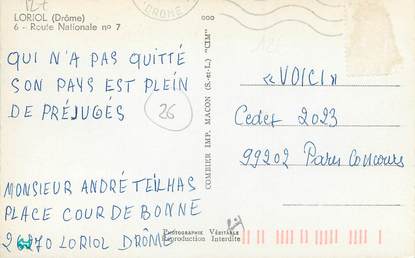 LORIOL (Drôme)
6 - Route Nationale nº 7
DROME
QUI N'A PAS QUITTÉ
SON PAYS EST PLEIN
DE PRÉJUGÉS
26
COMBIER IMP. MACON (S.-et-L.) "CIM"
«VOICI»
Cedex 2023
99202 Paris Concours
MONSIEUR ANDRÉ TEILHAS
PLACE COUR DE BONNE
LORIOL DRÔME
Photographie Véritable
Reproduction Interdite